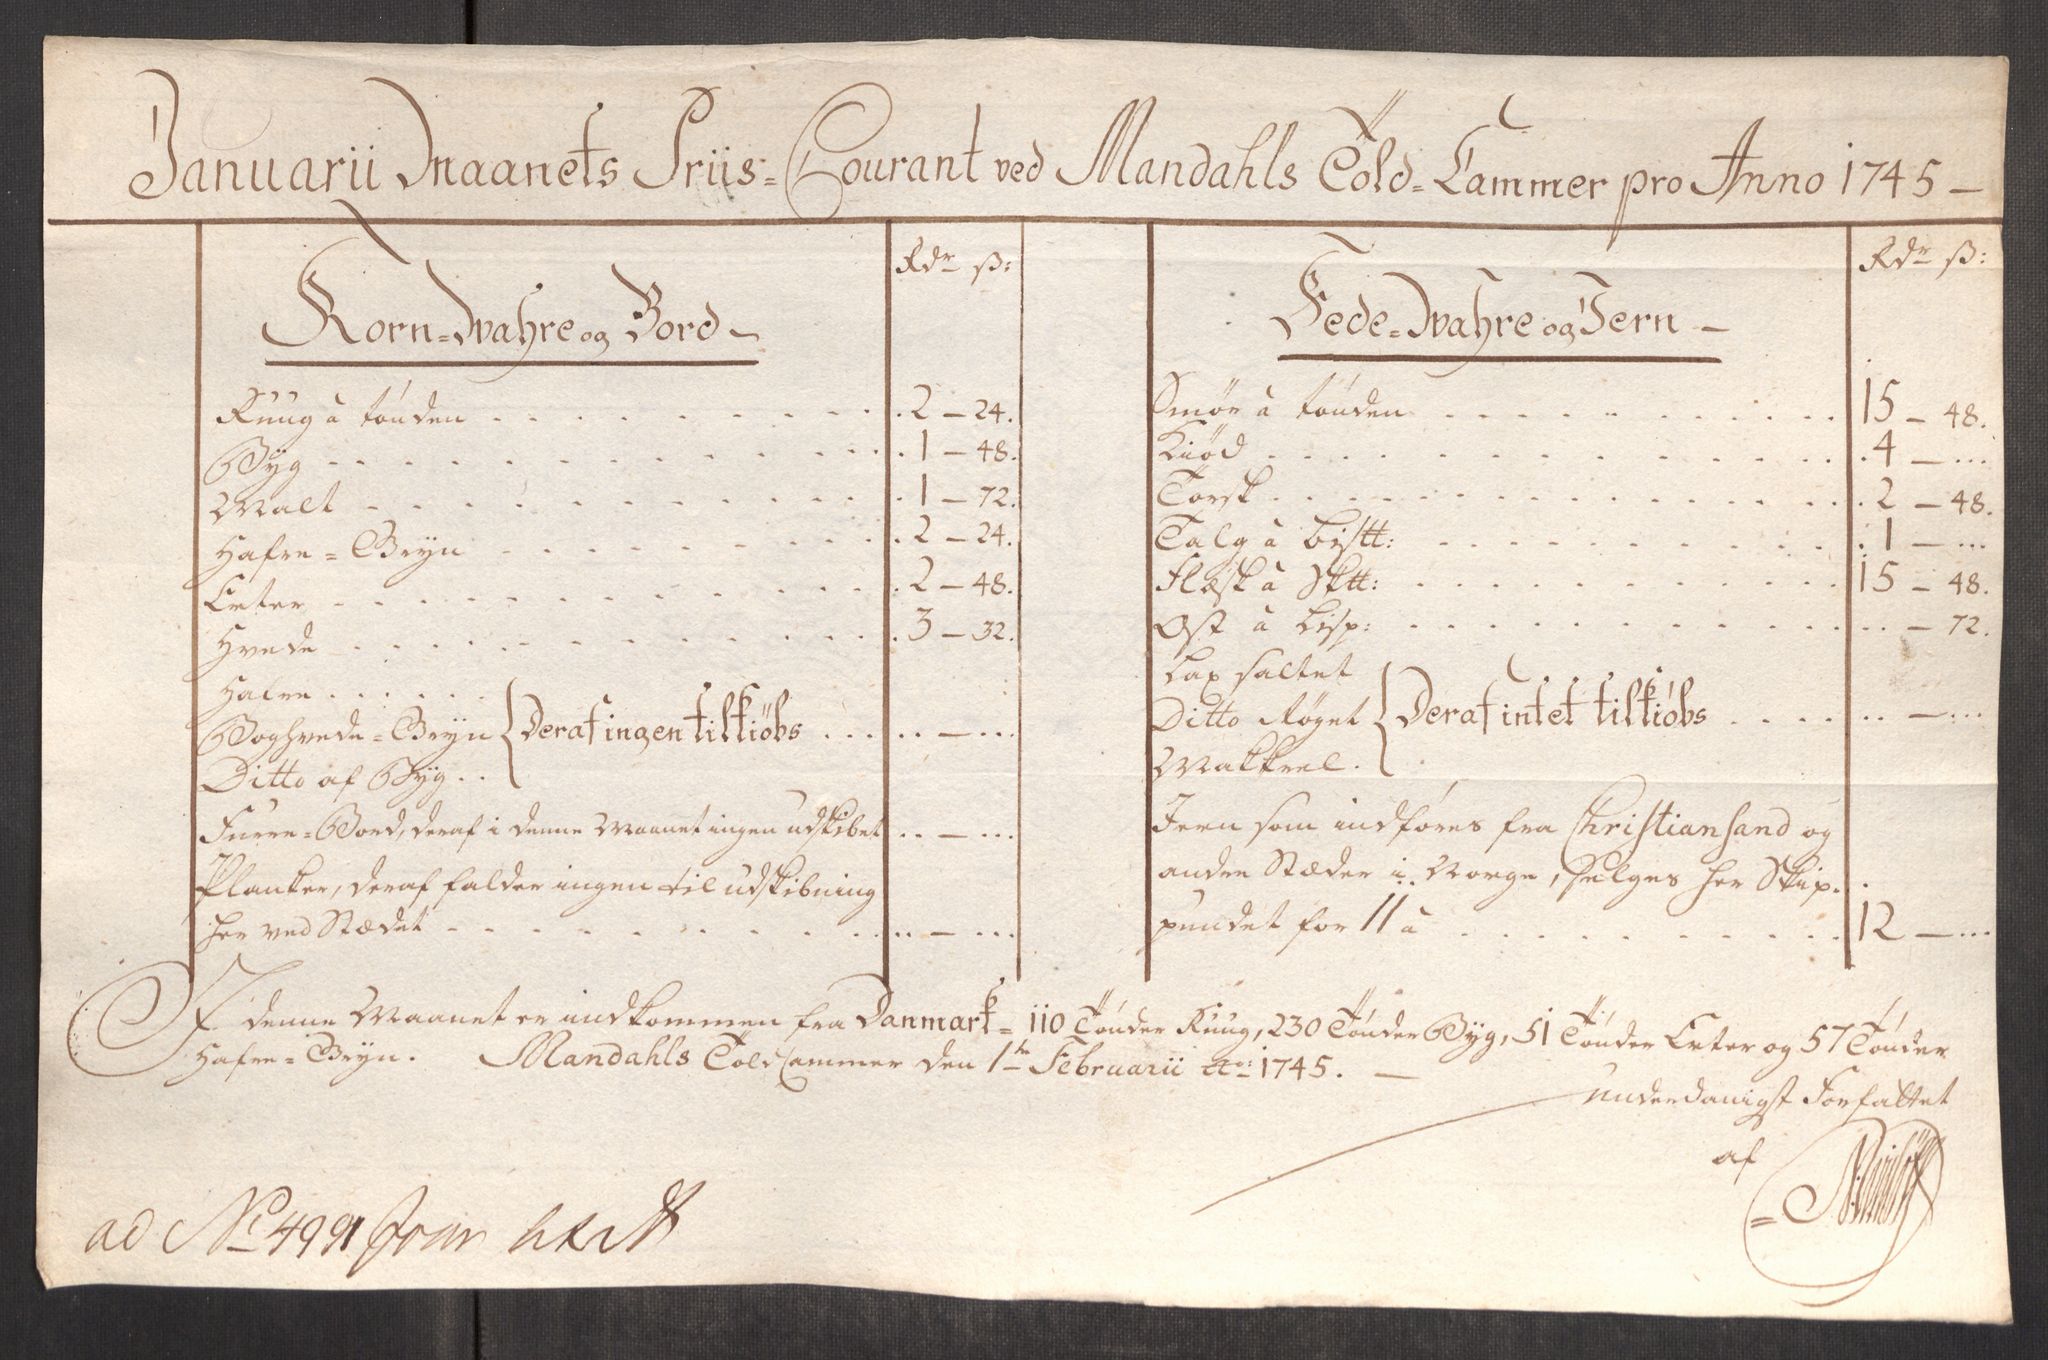 Januarii Maanets Priis=Courant ved Mandahls Told=Cammer pro Anno 1745 —
Rdr ß:
Korn=Wahre og Bord —
Ruug à tönden . . . 2 — 24.
Byg . . . 1 — 48.
Malt . . . 1 — 72.
Hafre=Gryn . . . 2 — 24.
Erter . . . 2 — 48.
Hvede . . . 3 — 32.
Hafre . . . . . .
Boghvede=Gryn { Deraf ingen tilkiöbs . . . .. — ...
Ditto af Byg . .
Furre=Bord, deraf i denne Maanet ingen udskibet .. — ...
Planker, deraf falder ingen til udskibning
her ved Stædet . . . .. — ...
Rdr ß:
Fede=Wahre og Jern —
Smör à tönden . . . 15 — 48.
Kiöd . . . 4 — ...
Torsk . . . 2 — 48.
Talg à Lis℔: . . . 1 — ...
Flæsk à Sk℔: . . . 15 — 48.
Ost à Lisp: . . . .. — 72.
Lax saltet
Ditto Röget { Deraf intet tilkiöbs . . . .. — ...
Makkrel .
Jern som indföres fra Christiansand og
andre Stæder i Norge, selges her Skip-
pundet for 11 à . . . 12 — ...
I denne Maanet er indkommen fra Danmark = 110 Tönder Ruug, 230 Tönder Byg, 51 Tönder Erter og 57 Tönder
Hafre=Gryn. Mandahls Told Cammer den 1te Februarii ao: 1745. —
underdanigst Forfattet
af
ad No 4991